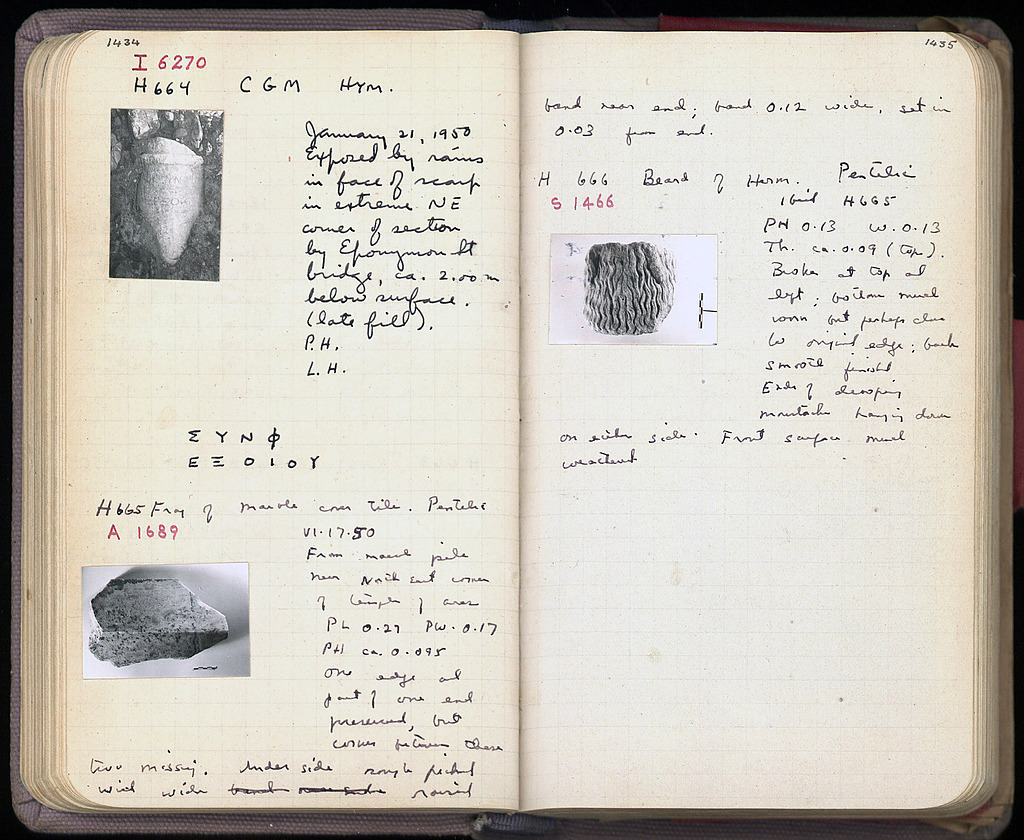 1434
I 6270
H 664 CGM Hym.
January 21, 1950
Exposed by rains
in face of scarp
in extreme NE
corner of section
by Eponymon St
bridge, ca. 2.00 m
below surface.
(late fill).
P.H.
L.H.
ΣΥΝΦ
ΕΞΟΙΟΥ
H 665 Frag of marble cover tile. Pentelic
A 1689
VI.17.50
From marble pile
near North East corner
of temple of Ares
PL 0.27 PW. 0.17
PH ca. 0.095
One edge and
part of one end
preserved, but
corner between these
two missing. Under side rough picked
with wide band near raised
1435
band near end; band 0.12 wide, set in
0.03 from end.
H 666 Beard of Herm. Pentelic
S 1466
ibid H 665
PH 0.13 W. 0.13
Th. ca. 0.09 (top).
Broken at top and
left; bottom much
worn but perhaps close
to original edge; back
smooth finished
Ends of drooping
moustache hanging down
on either side. Front surface much
weathered